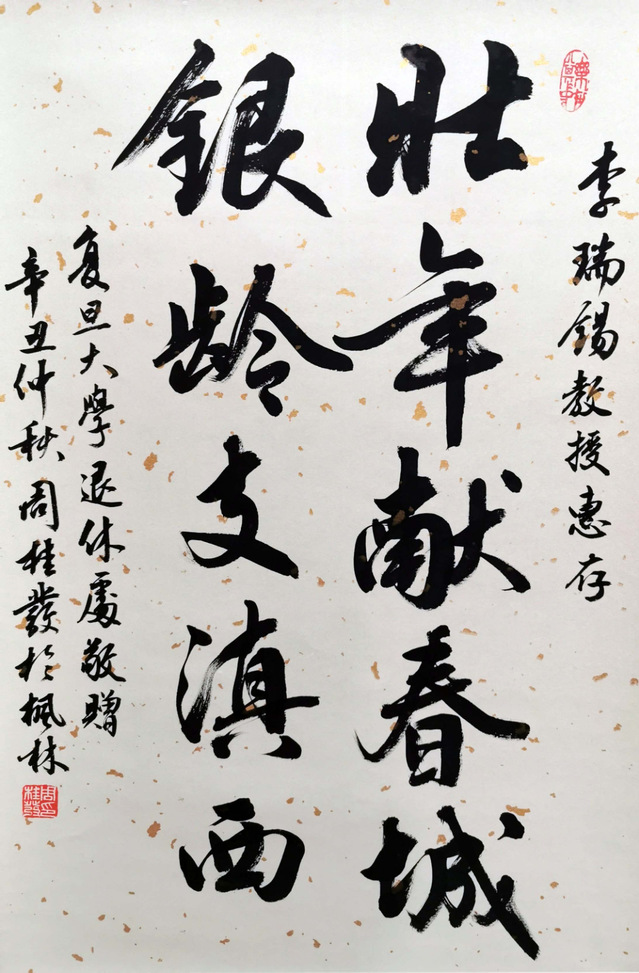 李瑞锡教授惠存
壯年献春城
银龄支滇西
复旦大學退休處敬贈
辛丑仲秋周桂發於楓林